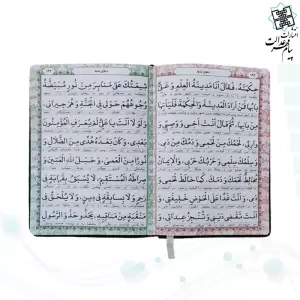 انتشارات
پیام عدالت
دعای ندبه
حِكْمَتَهُ، فَقالَ اَنَا مَدينَةُ الْعِلْمِ وَ عَلِىٌّ
بابُها فَمَنْ اَرادَ الْمَدينَةَ وَ الْحِكْمَةَ فَلْيَأْتِها
مِنْ بابِها، ثُمَّ قالَ اَنْتَ اَخى وَ وَصِيّى وَ
وارِثى، لَحْمُكَ مِنْ لَحْمى وَ دَمُكَ مِنْ دَمى،
وَ سِلْمُكَ سِلْمى وَ حَرْبُكَ حَرْبى، وَ الْايمانُ
مُخالِطٌ لَحْمَكَ وَ دَمَكَ، كَما خالَطَ لَحْمى وَ
دَمى، وَ اَنْتَ غَداً عَلَى الْحَوْضِ خَليفَتى، وَ
اَنْتَ تَقْضى دَيْنى وَ تُنْجِزُ عِداتى، وَ
دعای ندبه
شيعَتُكَ عَلى مَنابِرَ مِنْ نُورٍ مُبْيَضَّةً
وُجُوهُهُمْ حَوْلى فِى الْجَنَّةِ وَ هُمْ جيرانى،
وَ لَوْلا اَنْتَ يا عَلِىُّ لَمْ يُعْرَفِ الْمُؤْمِنُونَ
بَعْدى، وَ كانَ بَعْدَهُ هُدىً مِنَ الضَّلالِ وَ
نُوراً مِنَ الْعَمى، وَ حَبْلَ اللهِ الْمَتينَ وَ
صِراطَهُ الْمُسْتَقيمَ لا يُسْبَقُ بِقَرابَةٍ فى
رَحِمٍ، وَ لا بِسابِقَةٍ فى دينٍ، وَ لا يُلْحَقُ فى
مَنْقَبَةٍ مِنْ مَناقِبِهِ، يَحْذُو حَذْوَ الرَّسُولِ